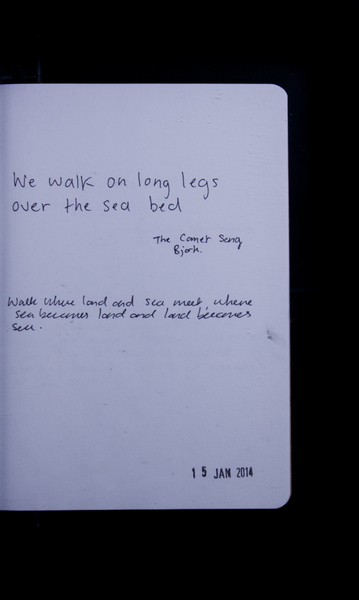 We walk on long legs
over the sea bed
The Comet Song
Bjork.
Walk where land and sea meet, where
sea becomes land and land becomes
sea.
15 JAN 2014